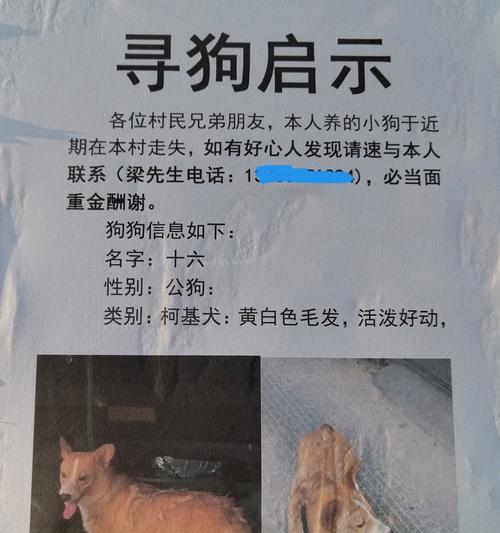 寻狗启示
各位村民兄弟朋友，本人养的小狗于近
期在本村走失，如有好心人发现请速与本人
联系（梁先生电话：13），必当面
重金酬谢。
狗狗信息如下：
名字：十六
性别：公狗：
类别：柯基犬：黄白色毛发，活泼好动，